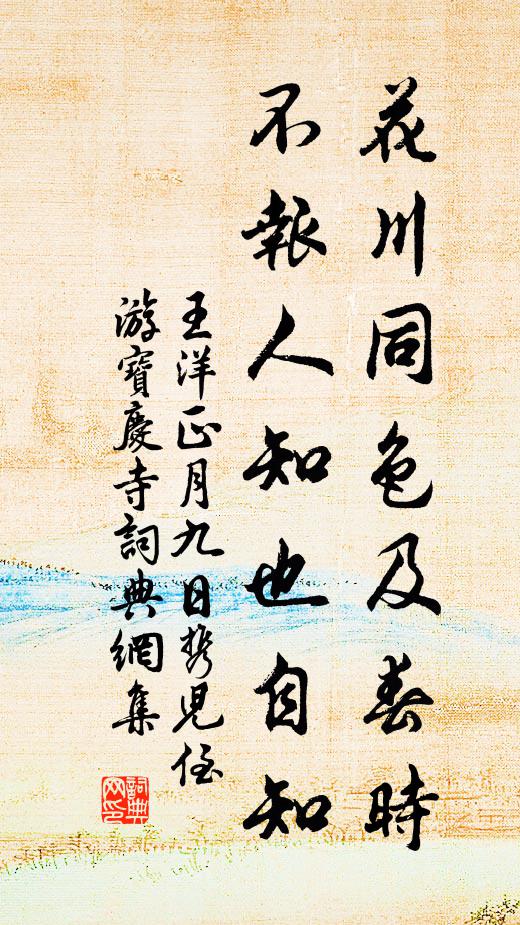 花川同色及春時
不報人知也自知
王洋正月九日携児侄
游寶慶寺詞典網集
詞典
网印